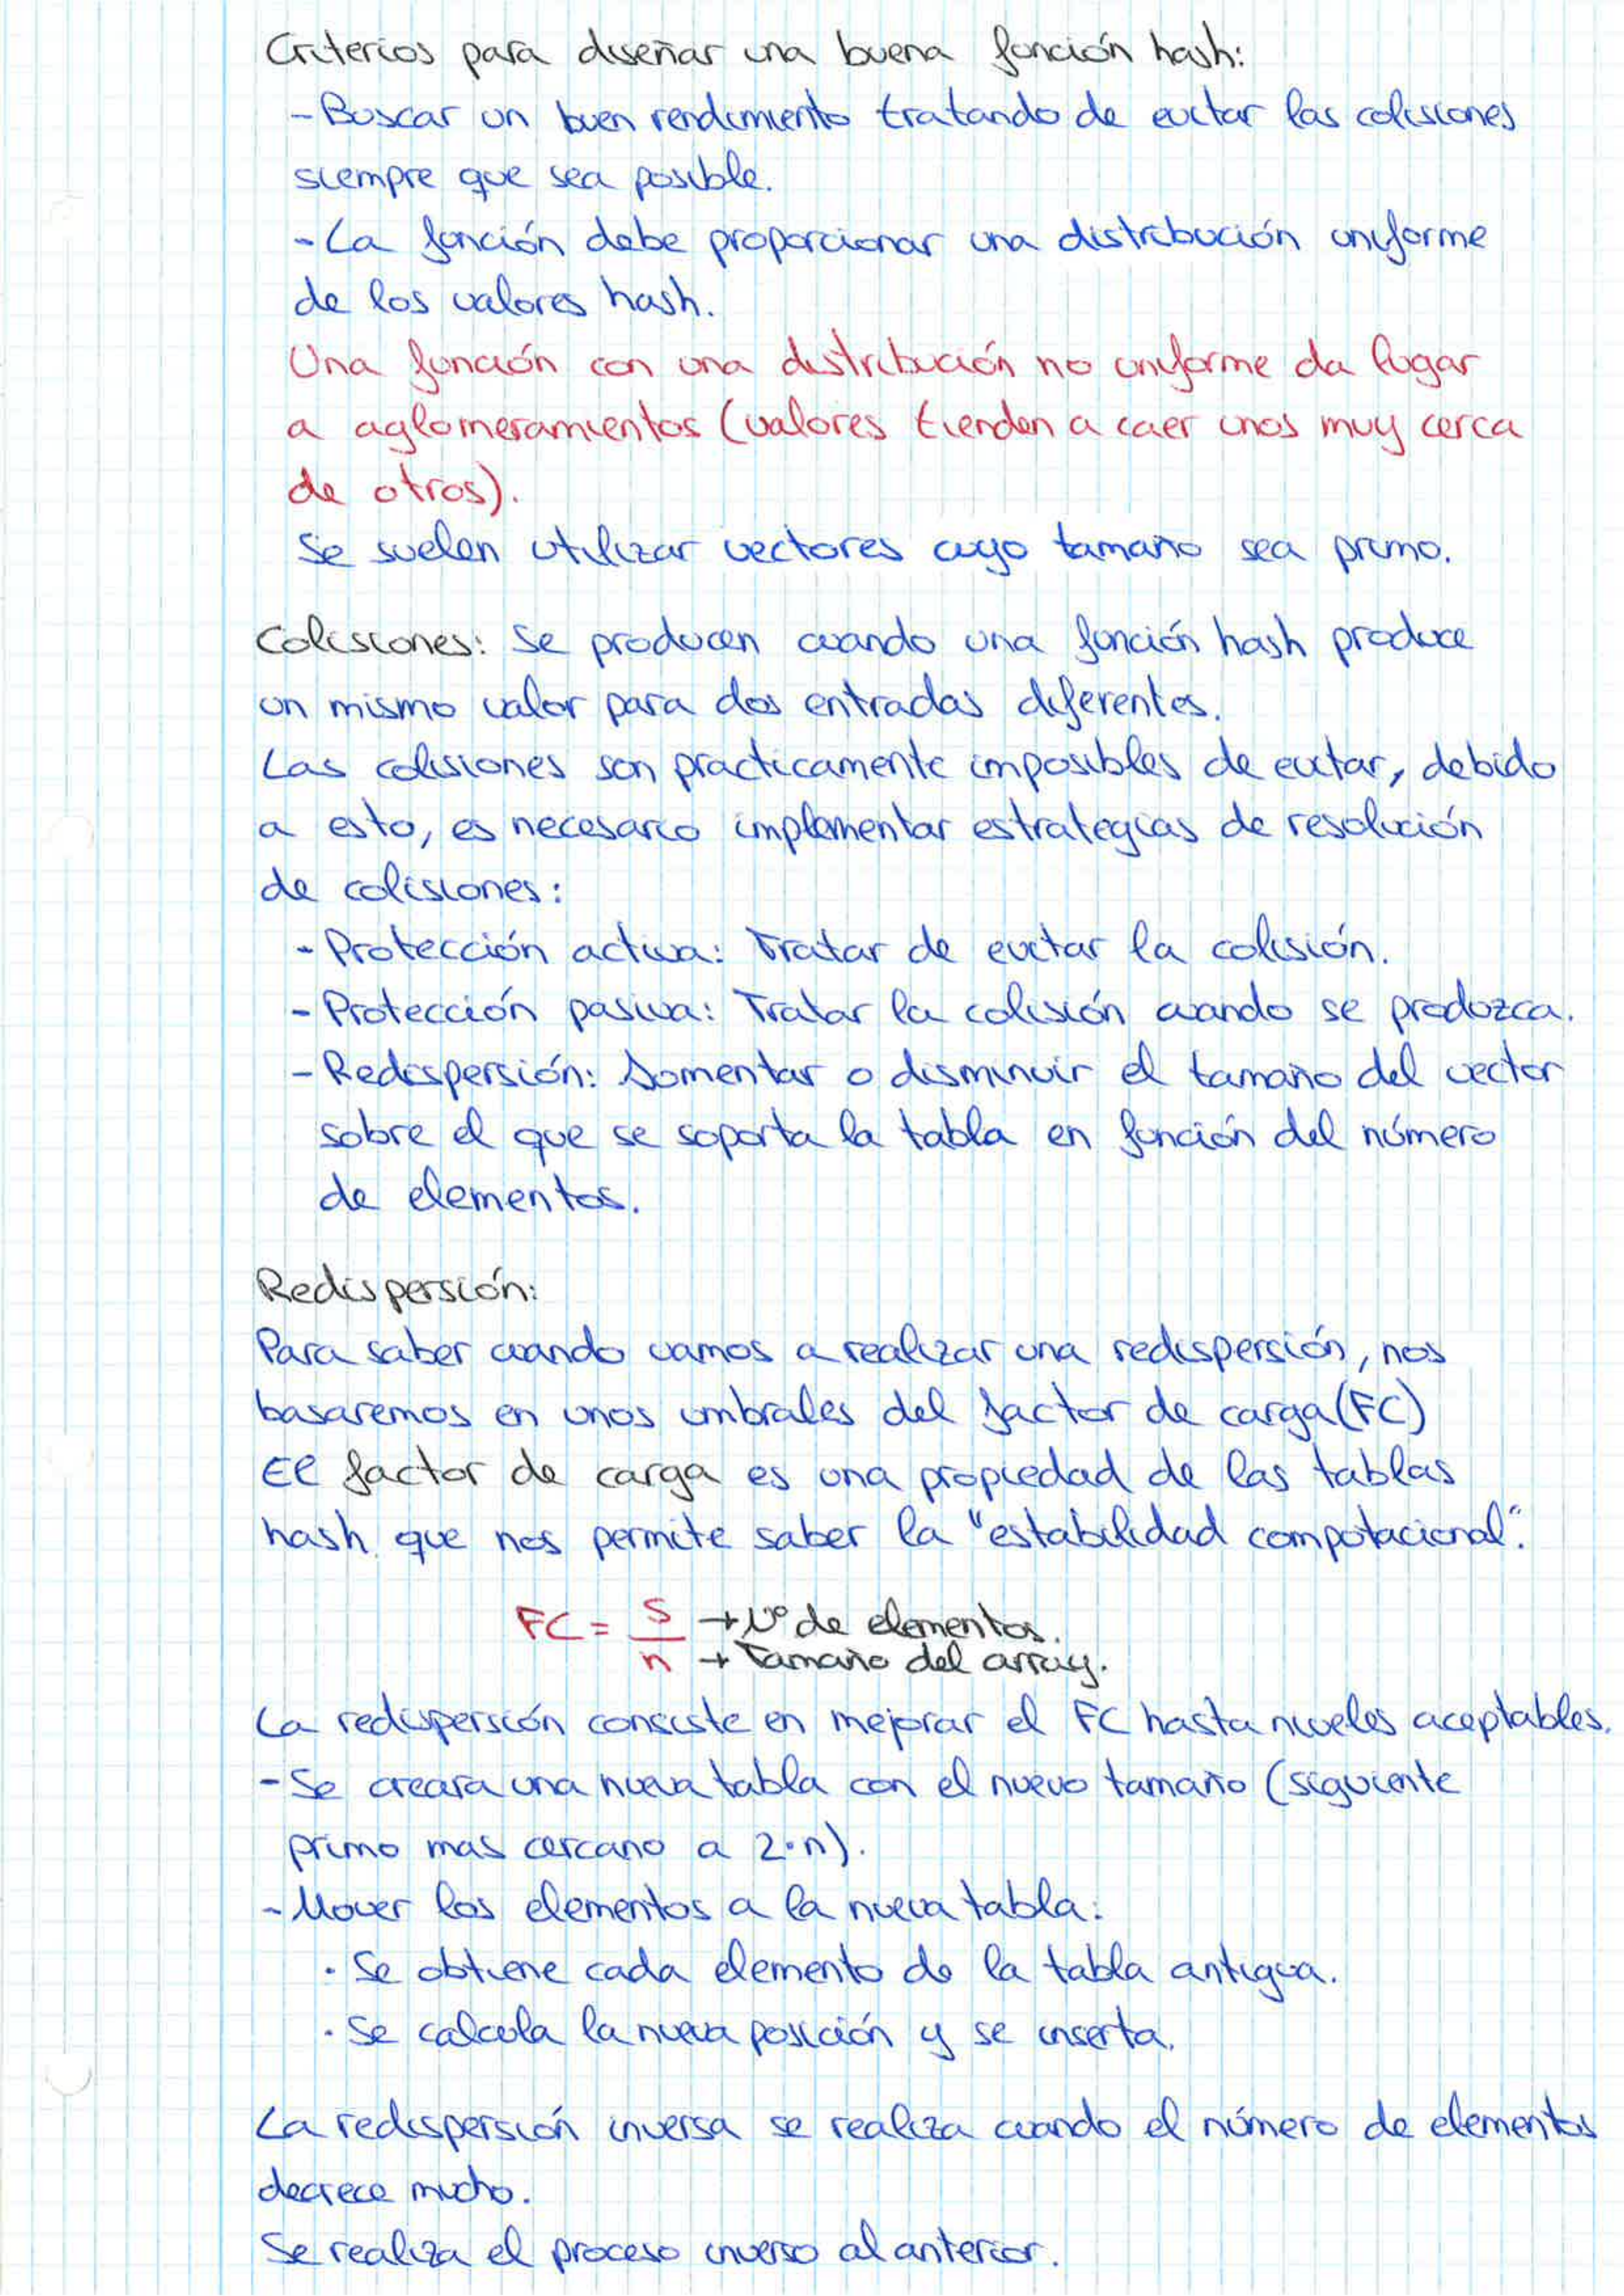 Criterios para diseñar una buena función hash:
- Buscar un buen rendimiento tratando de evitar las colisiones
siempre que sea posible.
- La función debe proporcionar una distribución uniforme
de los valores hash.
Una función con una distribución no uniforme da lugar
a aglomeramientos (valores tienden a caer unos muy cerca
de otros).
Se suelen utilizar vectores cuyo tamaño sea primo.
Colisiones: Se producen cuando una función hash produce
un mismo valor para dos entradas diferentes.
Las colisiones son practicamente imposibles de evitar, debido
a esto, es necesario implementar estrategias de resolución
de colisiones:
- Protección activa: Tratar de evitar la colisión.
- Protección pasiva: Tratar la colisión cuando se produzca.
- Redispersión: Aumentar o disminuir el tamaño del vector
sobre el que se soporta la tabla en función del número
de elementos.
Redispersión:
Para saber cuando vamos a realizar una redispersión, nos
basaremos en unos umbrales del factor de carga (FC)
El factor de carga es una propiedad de las tablas
hash que nos permite saber la "estabilidad computacional".
FC = S → Nº de elementos.
n → Tamaño del array.
La redispersión consiste en mejorar el FC hasta niveles aceptables.
- Se creara una nueva tabla con el nuevo tamaño (siguiente
primo mas cercano a 2·n).
- Mover los elementos a la nueva tabla:
· Se obtiene cada elemento de la tabla antigua.
· Se calcula la nueva posición y se inserta.
La redispersión inversa se realiza cuando el número de elementos
decrece mucho.
Se realiza el proceso inverso al anterior.